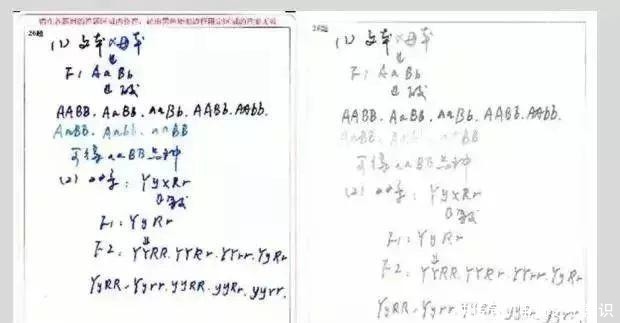 请在各题目的答题区域内作答，超出黑色矩形边框限定区域的答案无效
26题
(1) 父本×母本
↓
F1 AaBb
↓
AABB. AaBB. aaBb. AABb. AAbb.
AaBB. Aabb. aaBB
可得aaBB品种
(2)
: YyxRr
F1: YyRr
↓
F2: YYRR. YYRr. YYrr. YyRr
YyRR. Yyrr. yyRR. yyRr. yyrr.
26题
(1) 父本×母本
↓
F1 AaBb
↓
AABB. AaBB. aaBb. AABb. AAbb.
AaBB. Aabb. aaBB
可得aaBB品种
(2)
: YyxRr
F1: YyRr
↓
F2: YYRR. YYRr. YYrr. YyRr
YyRR. Yyrr. yyRR. yyRr. yyrr.